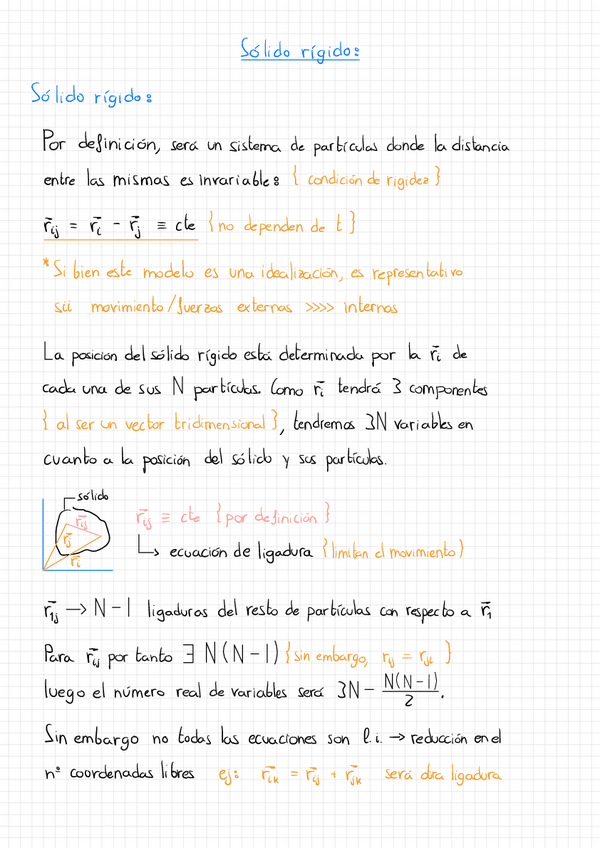 Sólido rígido:
Sólido rígido:
Por definición, será un sistema de partículas donde la distancia
entre las mismas es invariable: { condición de rigidez }
r̄ij = r̄i - r̄j ≡ cte { no dependen de t }
*Si bien este modelo es una idealización, es representativo
sii movimiento/fuerzas externas >>>> internas
La posición del sólido rígido está determinada por la r̄i de
cada una de sus N partículas. Como r̄i tendrá 3 componentes
{ al ser un vector tridimensional }, tendremos 3N variables en
cuanto a la posición del sólido y sus partículas.
sólido
r̄ij
r̄j
r̄i
r̄ij ≡ cte { por definición }
↳ ecuación de ligadura { limitan el movimiento }
r̄1j → N-1 ligaduras del resto de partículas con respecto a r̄1
Para r̄ij por tanto ∃ N(N-1) { sin embargo, rij = rji }
luego el número real de variables será 3N - N(N-1)/2.
Sin embargo no todas las ecuaciones son l.i. → reducción en el
nº coordenadas libres ej: r̄ik = r̄ij + r̄jk será otra ligadura